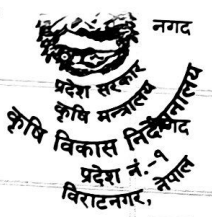 नगद
प्रदेश सरकार
कृषि मन्त्रालय
कृषि विकास निर्देशनालय
नगद
प्रदेश नं.-१
विराटनगर, नेपाल